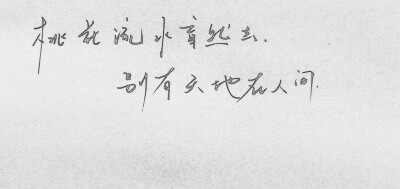 桃花流水窅然去.
别有天地在人间.